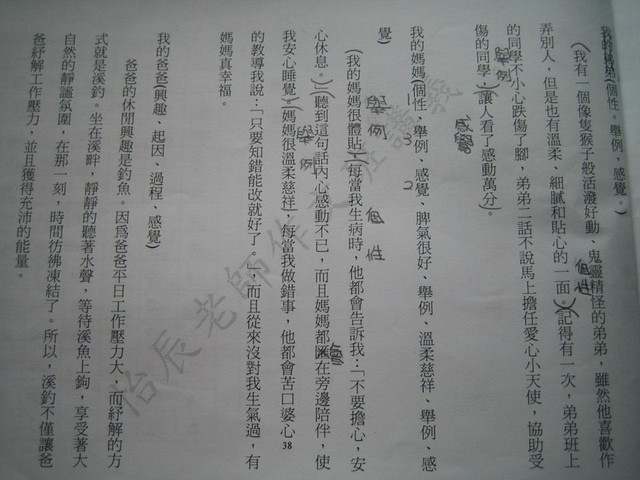 我的弟弟(個性、舉例、感覺。)
(我有一個像隻猴子般活潑好動、鬼靈精怪的弟弟，雖然他喜歡作
個性
弄別人，但是也有溫柔、細膩和貼心的一面。)(記得有一次，弟弟班上
的同學不小心跌傷了腳，弟弟二話不說馬上擔任愛心小天使，協助受
舉例
傷的同學。)(讓人看了感動萬分)。
感覺
我的媽媽(個性、舉例、感覺、脾氣很好、舉例、溫柔慈祥、舉例、感
覺)
1 3 2
舉例 個性
(我的媽媽很體貼，)(每當我生病時，他都會告訴我：「不要擔心，安
心休息。」)(聽到這句話內心感動不已，而且媽媽都會在旁邊陪伴，使
舉例
我安心睡覺。)(媽媽很溫柔慈祥，每當我做錯事，他都會苦口婆心
的教導我說：「只要知錯能改就好了。」，而且從來沒對我生氣過，有
媽媽真幸福。
我的爸爸(興趣、起因、過程、感覺)
爸爸的休閒興趣是釣魚。因爲爸爸平日工作壓力大，而紓解的方
式就是溪釣。坐在溪畔，靜靜的聽著水聲，等待溪魚上鉤，享受著大
自然的靜謐氛圍，在那一刻，時間彷彿凍結了。所以，溪釣不僅讓爸
爸紓解工作壓力，並且獲得充沛的能量。
38
怡辰老師作文班講義